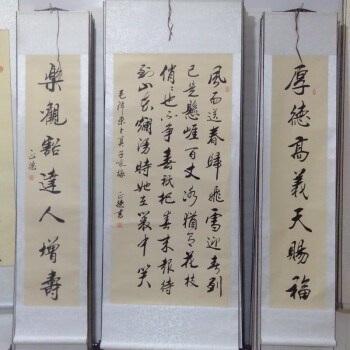 厚德高義天賜福
風雨送春歸飛雪迎春到
已是懸崖百丈冰猶有花枝
俏俏也不爭春只把春來報待
到山花爛漫時她在叢中笑
毛澤東卜算子咏梅
樂觀豁達人增壽